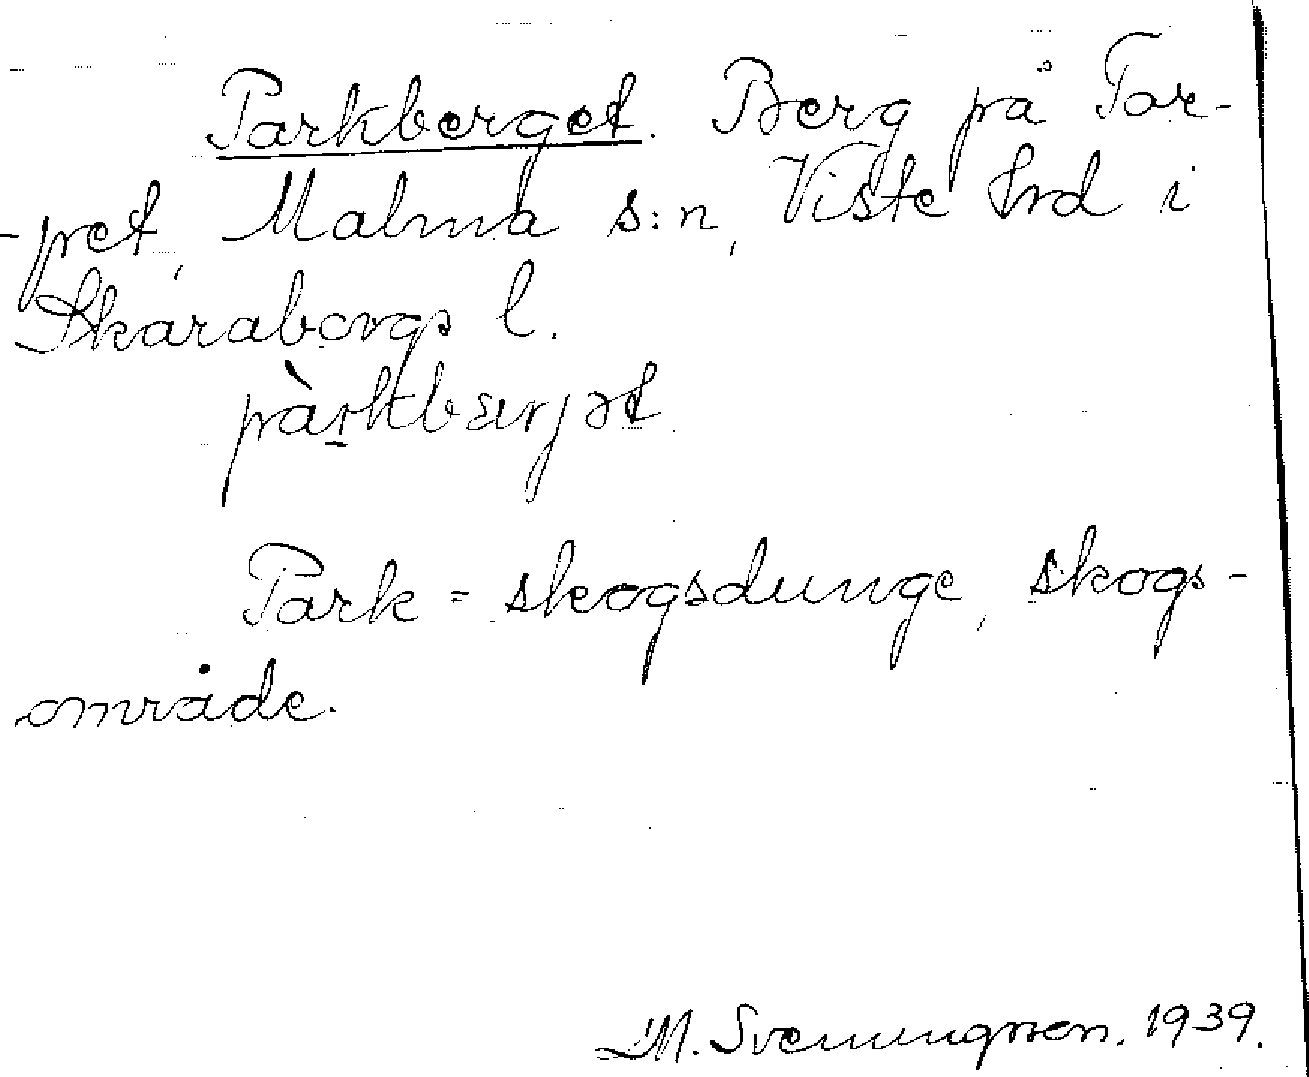 Parkberget. Berg på Tor-
-pet, Malma s:n, Viste hrd i
Skaraborgs l.
pàrktbærjət
Park = skogsdunge, skogs-
område.
M. Svenungsson. 1939.